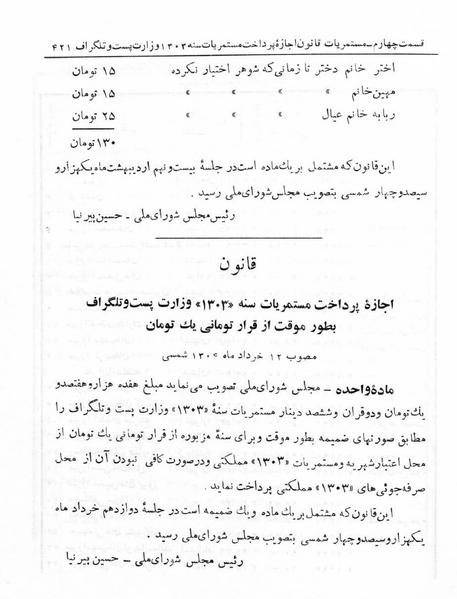 قسمت چهارم ـ مستمریات قانون اجازهٔ پرداخت مستمریات سنه ۱۳۰۳ وزارت پست و تلگراف ۴۲۱
اختر خانم دختر تا زمانی که شوهر اختیار نکرده ۱۵ تومان
مهین خانم » » » » ۱۵ تومان
ربابه خانم عیال » » » ۲۵ تومان
۱۳۰ تومان
این قانون که مشتمل بر یك ماده است در جلسهٔ بیست و نهم اردیبهشت ماه یکهزار و
سیصد و چهار شمسی بتصویب مجلس شورای ملی رسید .
رئیس مجلس شورای ملی ـ حسین پیر نیا
قانون
اجازهٔ پرداخت مستمریات سنه «۱۳۰۳» وزارت پست و تلگراف
بطور موقت از قرار تومانی یك تومان
مصوب ۱۲ خرداد ماه ۱۳۰۴ شمسی
مادهٔ واحده ـ مجلس شورای ملی تصویب می نماید مبلغ هفده هزار و هفتصد و
یك تومان و دو قران و ششصد دینار مستمریات سنهٔ «۱۳۰۳» وزارت پست و تلگراف را
مطابق صورتهای ضمیمه بطور موقت و برای سنهٔ مزبوره از قرار تومانی یك تومان از
محل اعتبار شهریه و مستمریات «۱۳۰۳» مملکتی و در صورت کافی نبودن آن از محل
صرفه جوئی های «۱۳۰۳» مملکتی پرداخت نماید .
این قانون که مشتمل بر یك ماده و یك ضمیمه است در جلسهٔ دوازدهم خرداد ماه
یکهزار و سیصد و چهار شمسی بتصویب مجلس شورای ملی رسید .
رئیس مجلس شورای ملی ـ حسین پیر نیا